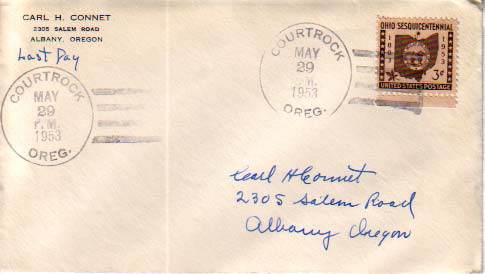 CARL H. CONNET
2305 SALEM ROAD
ALBANY, OREGON
Last Day
COURTROCK
MAY
29
P.M.
1953
OREG.
COURTROCK
MAY
29
P.M.
1953
OREG.
OHIO SESQUICENTENNIAL
1803
1953
3¢
UNITED STATES POSTAGE
Carl H Connet
2305 Salem Road
Albany Oregon